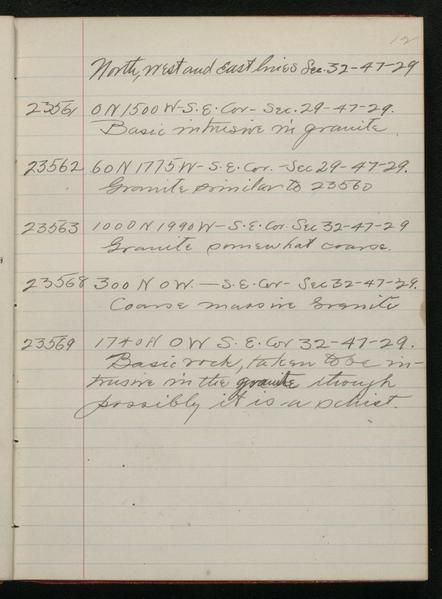 12
North, West and East lines Sec. 32-47-29
23561 0 N 1500 W - S.E. Cor - Sec. 29-47-29.
Basic intrusive in granite.
23562 60 N 1775 W - S.E. Cor. - Sec 29-47-29.
Granite similar to 23560
23563 1000 N 1990 W - S.E. Cor. Sec 32-47-29
Granite somewhat coarse.
23568 300 N 0 W. — S.E. Cor - Sec 32-47-29.
Coarse massive Granite
23569 1740 N 0 W S.E. Cor 32-47-29.
Basic rock, taken to be in-
trusive in the granite though
possibly it is a schist.